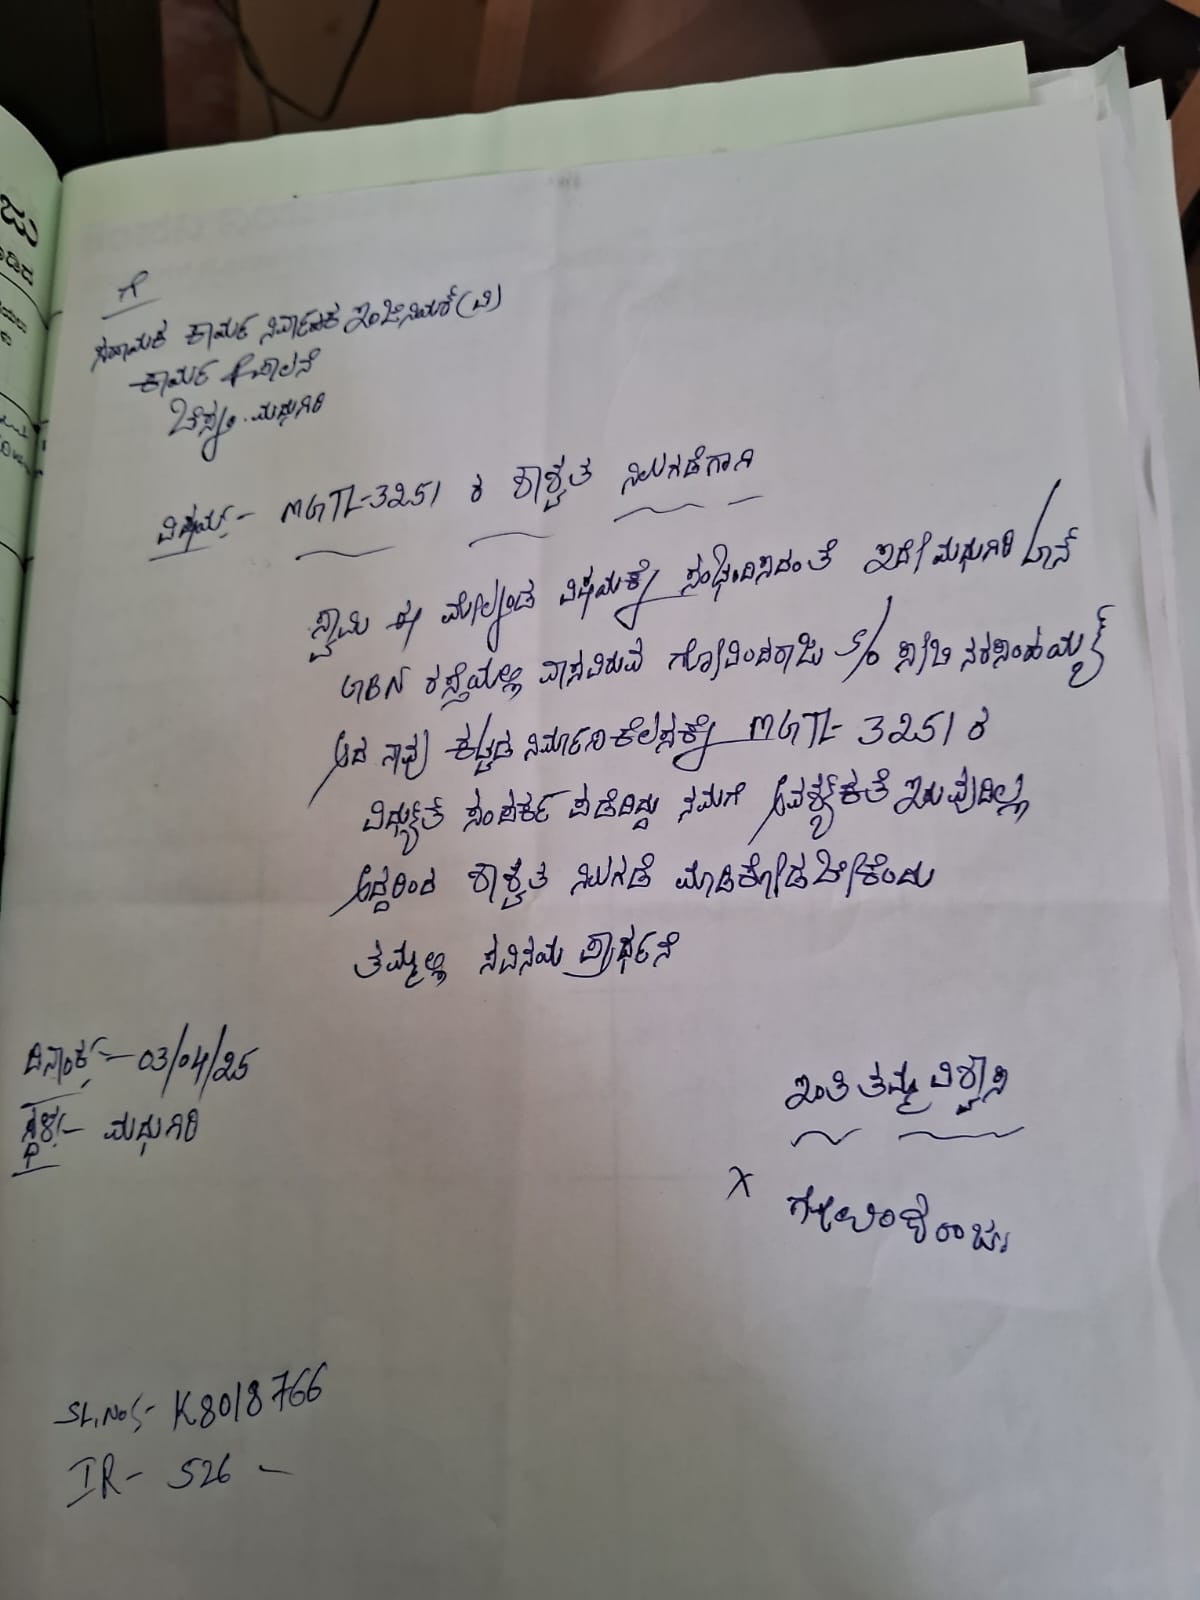 ಗೆ
ಸಹಾಯಕ ಕಾರ್ಯ ನಿರ್ವಾಹಕ ಇಂಜಿನಿಯರ್ (ವಿ)
ಕಾರ್ಯ & ಪಾಲನೆ
ಬೆಸ್ಕಂ. ಮಧುಗಿರಿ
ವಿಷಯ:- MGTL-3251 ರ ಶಾಶ್ವತ ನಿಲುಗಡೆಗಾಗಿ
ಸ್ವಾಮಿ ಈ ಮೇಲ್ಕಂಡ ವಿಷಯಕ್ಕೆ ಸಂಭಂದಿಸಿದಂತೆ ಇದೇ ಮಧುಗಿರಿ ಟಾನ್
GBN ರಸ್ತೆಯಲ್ಲಿ ವಾಸವಿರುವ ಗೋವಿಂದರಾಜು S/o ನರಸಿಂಹಯ್ಯ
ಆದ ನಾವು ಕಟ್ಟಡ ನಿರ್ಮಾಣ ಕೆಲಸಕ್ಕೆ MGTL- 3251 ರ
ವಿದ್ಯುತ್ ಸಂಪರ್ಕ ಪಡೆದಿದ್ದು ನಮಗೆ ಅವಶ್ಯಕತೆ ಇರುವುದಿಲ್ಲ
ಆದ್ದರಿಂದ ಶಾಶ್ವತ ನಿಲುಗಡೆ ಮಾಡಿಕೋಡಬೇಕೆಂದು
ತಮ್ಮಲ್ಲಿ ಸವಿನಯ ಪ್ರಾರ್ಥನೆ
ದಿನಾಂಕ:- 03/04/25
ಸ್ಥಳ:- ಮಧುಗಿರಿ
ಇಂತಿ ತಮ್ಮ ವಿಶ್ವಾಸಿ
X ಗೋವಿಂದರಾಜು
SL.No:- K8018766
IR- 526 -